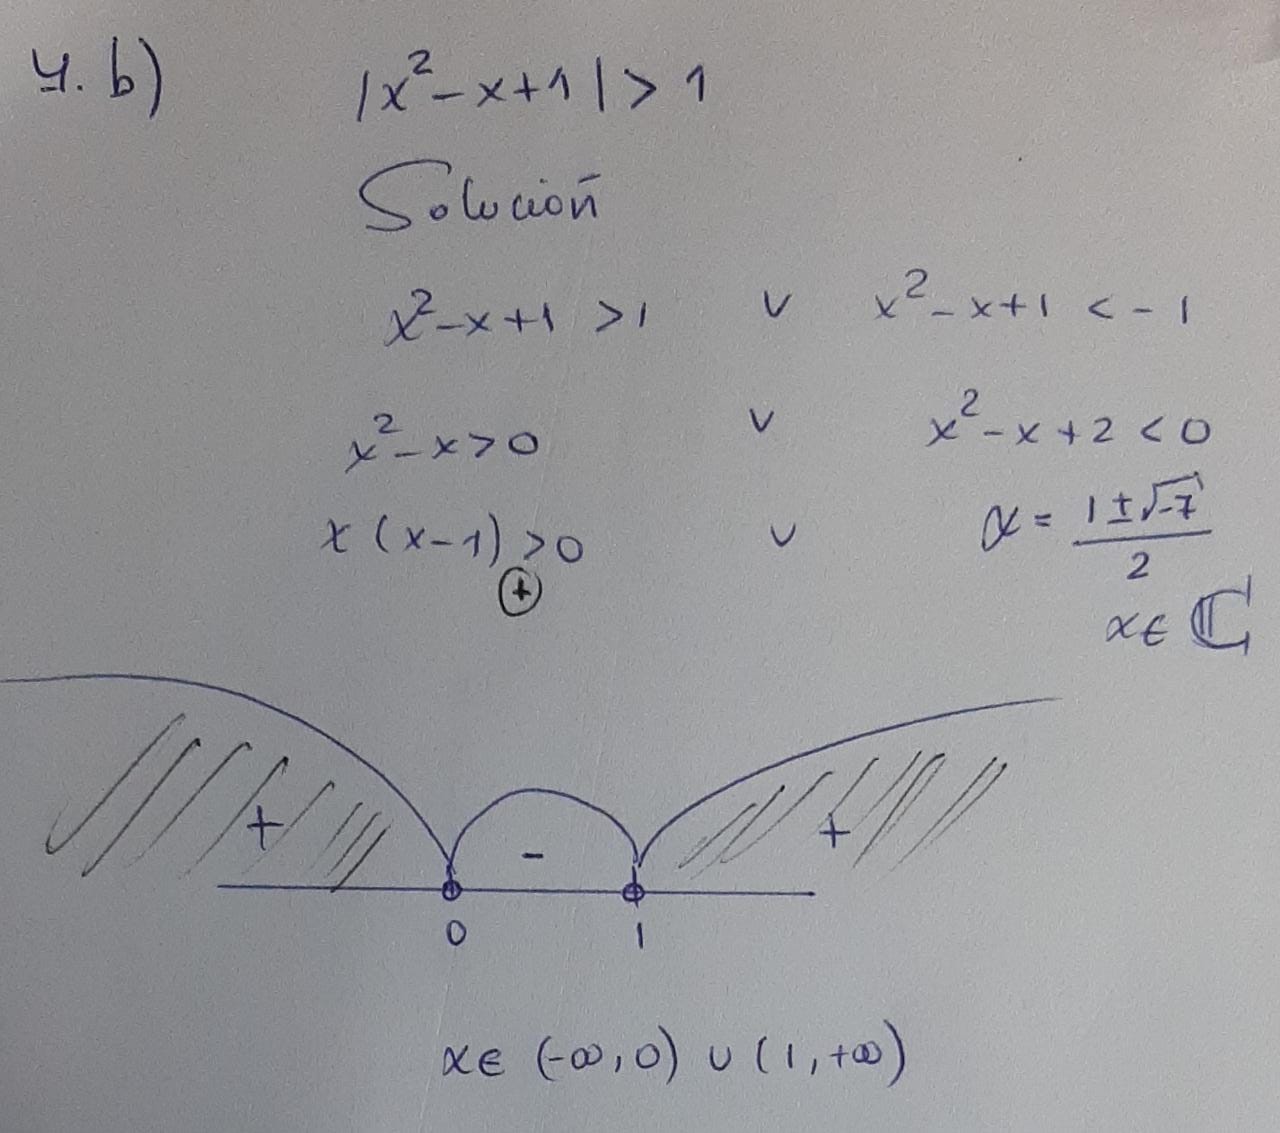 4. b) |x²-x+1|>1
Solución
x²-x+1 >1 ∨ x²-x+1 < -1
x²-x>0 ∨ x²-x+2<0
x(x-1)>0 ∨ x = (1±√-7)/2
⊕
x∈ ℂ
+ - +
0 1
x∈ (-∞,0) ∪ (1,+∞)